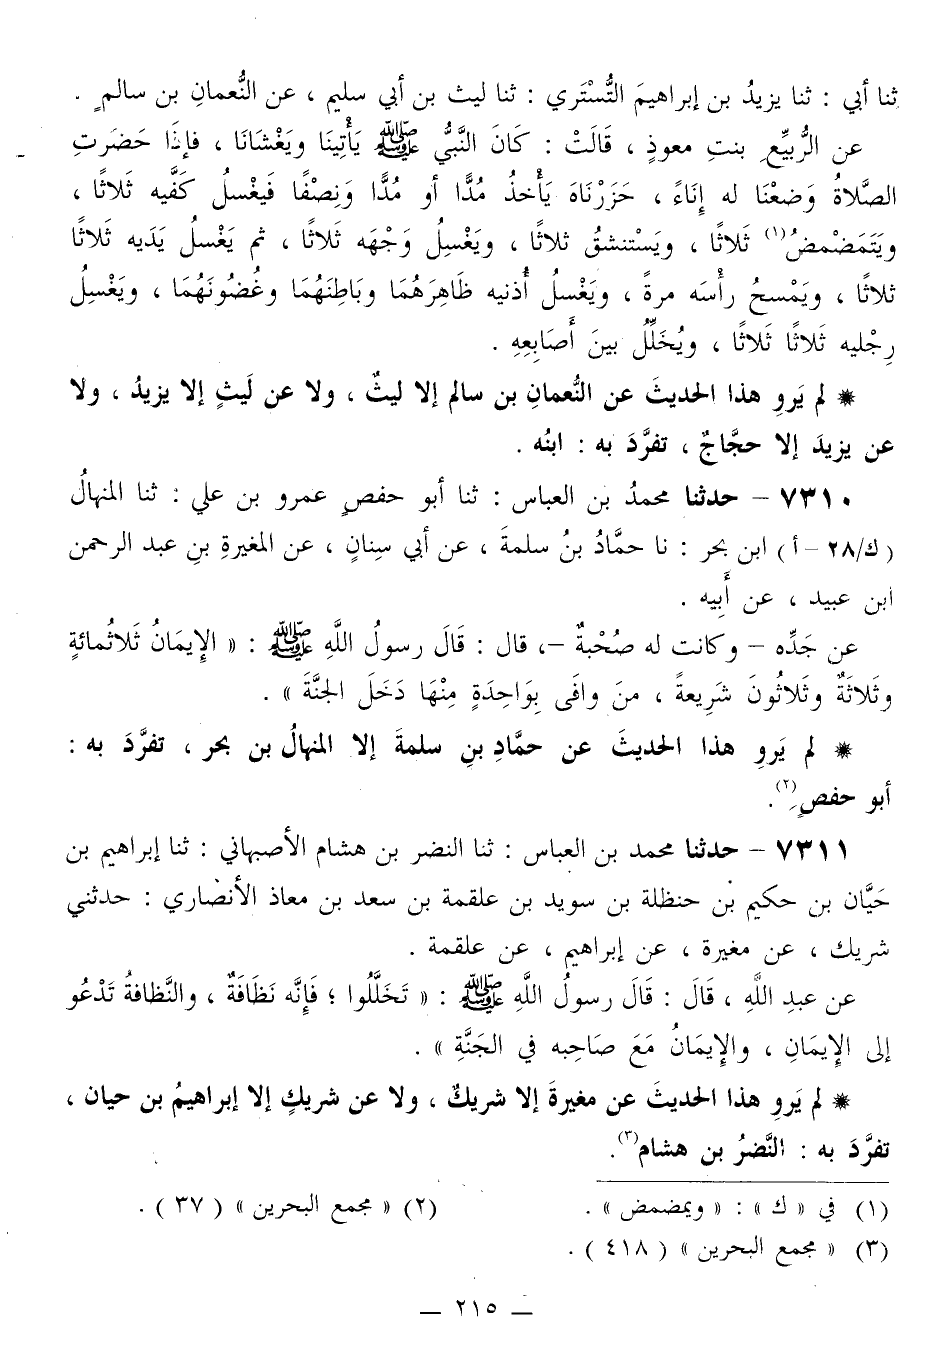 ثنا أبي : ثنا يزيدُ بن إبراهيمَ التُّسْتَري : ثنا ليث بن أبي سليم ، عن النُّعمانِ بن سالمٍ .
عن الرُّبيِّعِ بنتِ معوذٍ ، قَالَتْ : كَانَ النَّبيُّ ﷺ يَأْتِينَا ويَغْشَانَا ، فإذَا حَضَرتِ
الصَّلاةُ وَضعْنَا له إنَاءً ، حَزَرْنَاهَ يَأْخذُ مُدًّا أو مُدًّا وَنصْفًا فَيغْسلُ كَفَّيه ثَلاثًا ،
ويَتَمَضْمضُ(١) ثَلاثًا ، ويَسْتنشقُ ثلاثًا ، ويَغْسِلُ وَجْهَه ثَلاثًا ، ثم يَغْسلُ يَدَيه ثَلاثًا
ثلاثًا ، ويَمْسحُ رأْسَه مرةً ، ويَغْسلُ أُذنيه ظَاهِرَهُمَا وبَاطِنَهُمَا وغُضُونَهُمَا ، ويَغْسِلُ
رِجْليه ثَلاثًا ثَلاثًا ، ويُخَلِّلُ بينَ أَصَابِعِهِ .
* لم يَروِ هذا الحديثَ عن النُّعمانِ بن سالم إلا ليثٌ ، ولا عن لَيثٍ إلا يزيدُ ، ولا
عن يزيدَ إلا حجَّاجٌ ، تفرَّدَ به : ابنُه .
٧٣١٠ - حدثنا محمدُ بن العباس : ثنا أبو حفصٍ عمرو بن علي : ثنا المنهالُ
( ك/٢٨ - أ ) ابن بحر : نا حمَّادُ بنُ سلمةَ ، عن أبي سِنانٍ ، عن المغيرةِ بنِ عبد الرحمن
ابن عبيد ، عن أَبِيه .
عن جَدِّه - وكانت له صُحْبةٌ -، قال : قَالَ رسولُ اللَّهِ ﷺ : « الإِيمَانُ ثَلاثُمائةٍ
وثَلاثَةٌ وثَلاثُونَ شَرِيعةً ، منَ وافَى بِوَاحِدَةٍ مِنْهَا دَخَلَ الجنَّةَ » .
* لم يَروِ هذا الحديثَ عن حمَّادِ بنِ سلمةَ إلا المنهالُ بن بحر ، تفرَّدَ به :
أبو حفصٍ(٢).
٧٣١١ - حدثنا محمد بن العباس : ثنا النضر بن هشام الأصبهاني : ثنا إبراهيم بن
حَيَّان بن حكيم بن حنظلة بن سويد بن علقمة بن سعد بن معاذ الأنصاري : حدثني
شريك ، عن مغيرة ، عن إبراهيم ، عن علقمة .
عن عبدِ اللَّهِ ، قَالَ : قَالَ رسولُ اللَّهِ ﷺ : « تَخَلَّلُوا ؛ فَإِنَّه نَظَافَةٌ ، والنَّظافةُ تَدْعُو
إلى الإِيمَانِ ، والإِيمَانُ مَعَ صَاحِبه في الجَنَّةِ » .
* لم يَروِ هذا الحديثَ عن مغيرةَ إلا شريكٌ ، ولا عن شريكٍ إلا إبراهيمُ بن حيان ،
تفرَّدَ به : النَّضرُ بن هشام(٣).
(١) في « ك » : « ويمضمض » .
(٢) « مجمع البحرين » ( ٣٧ ) .
(٣) « مجمع البحرين » ( ٤١٨ ) .
— ٢١٥ —